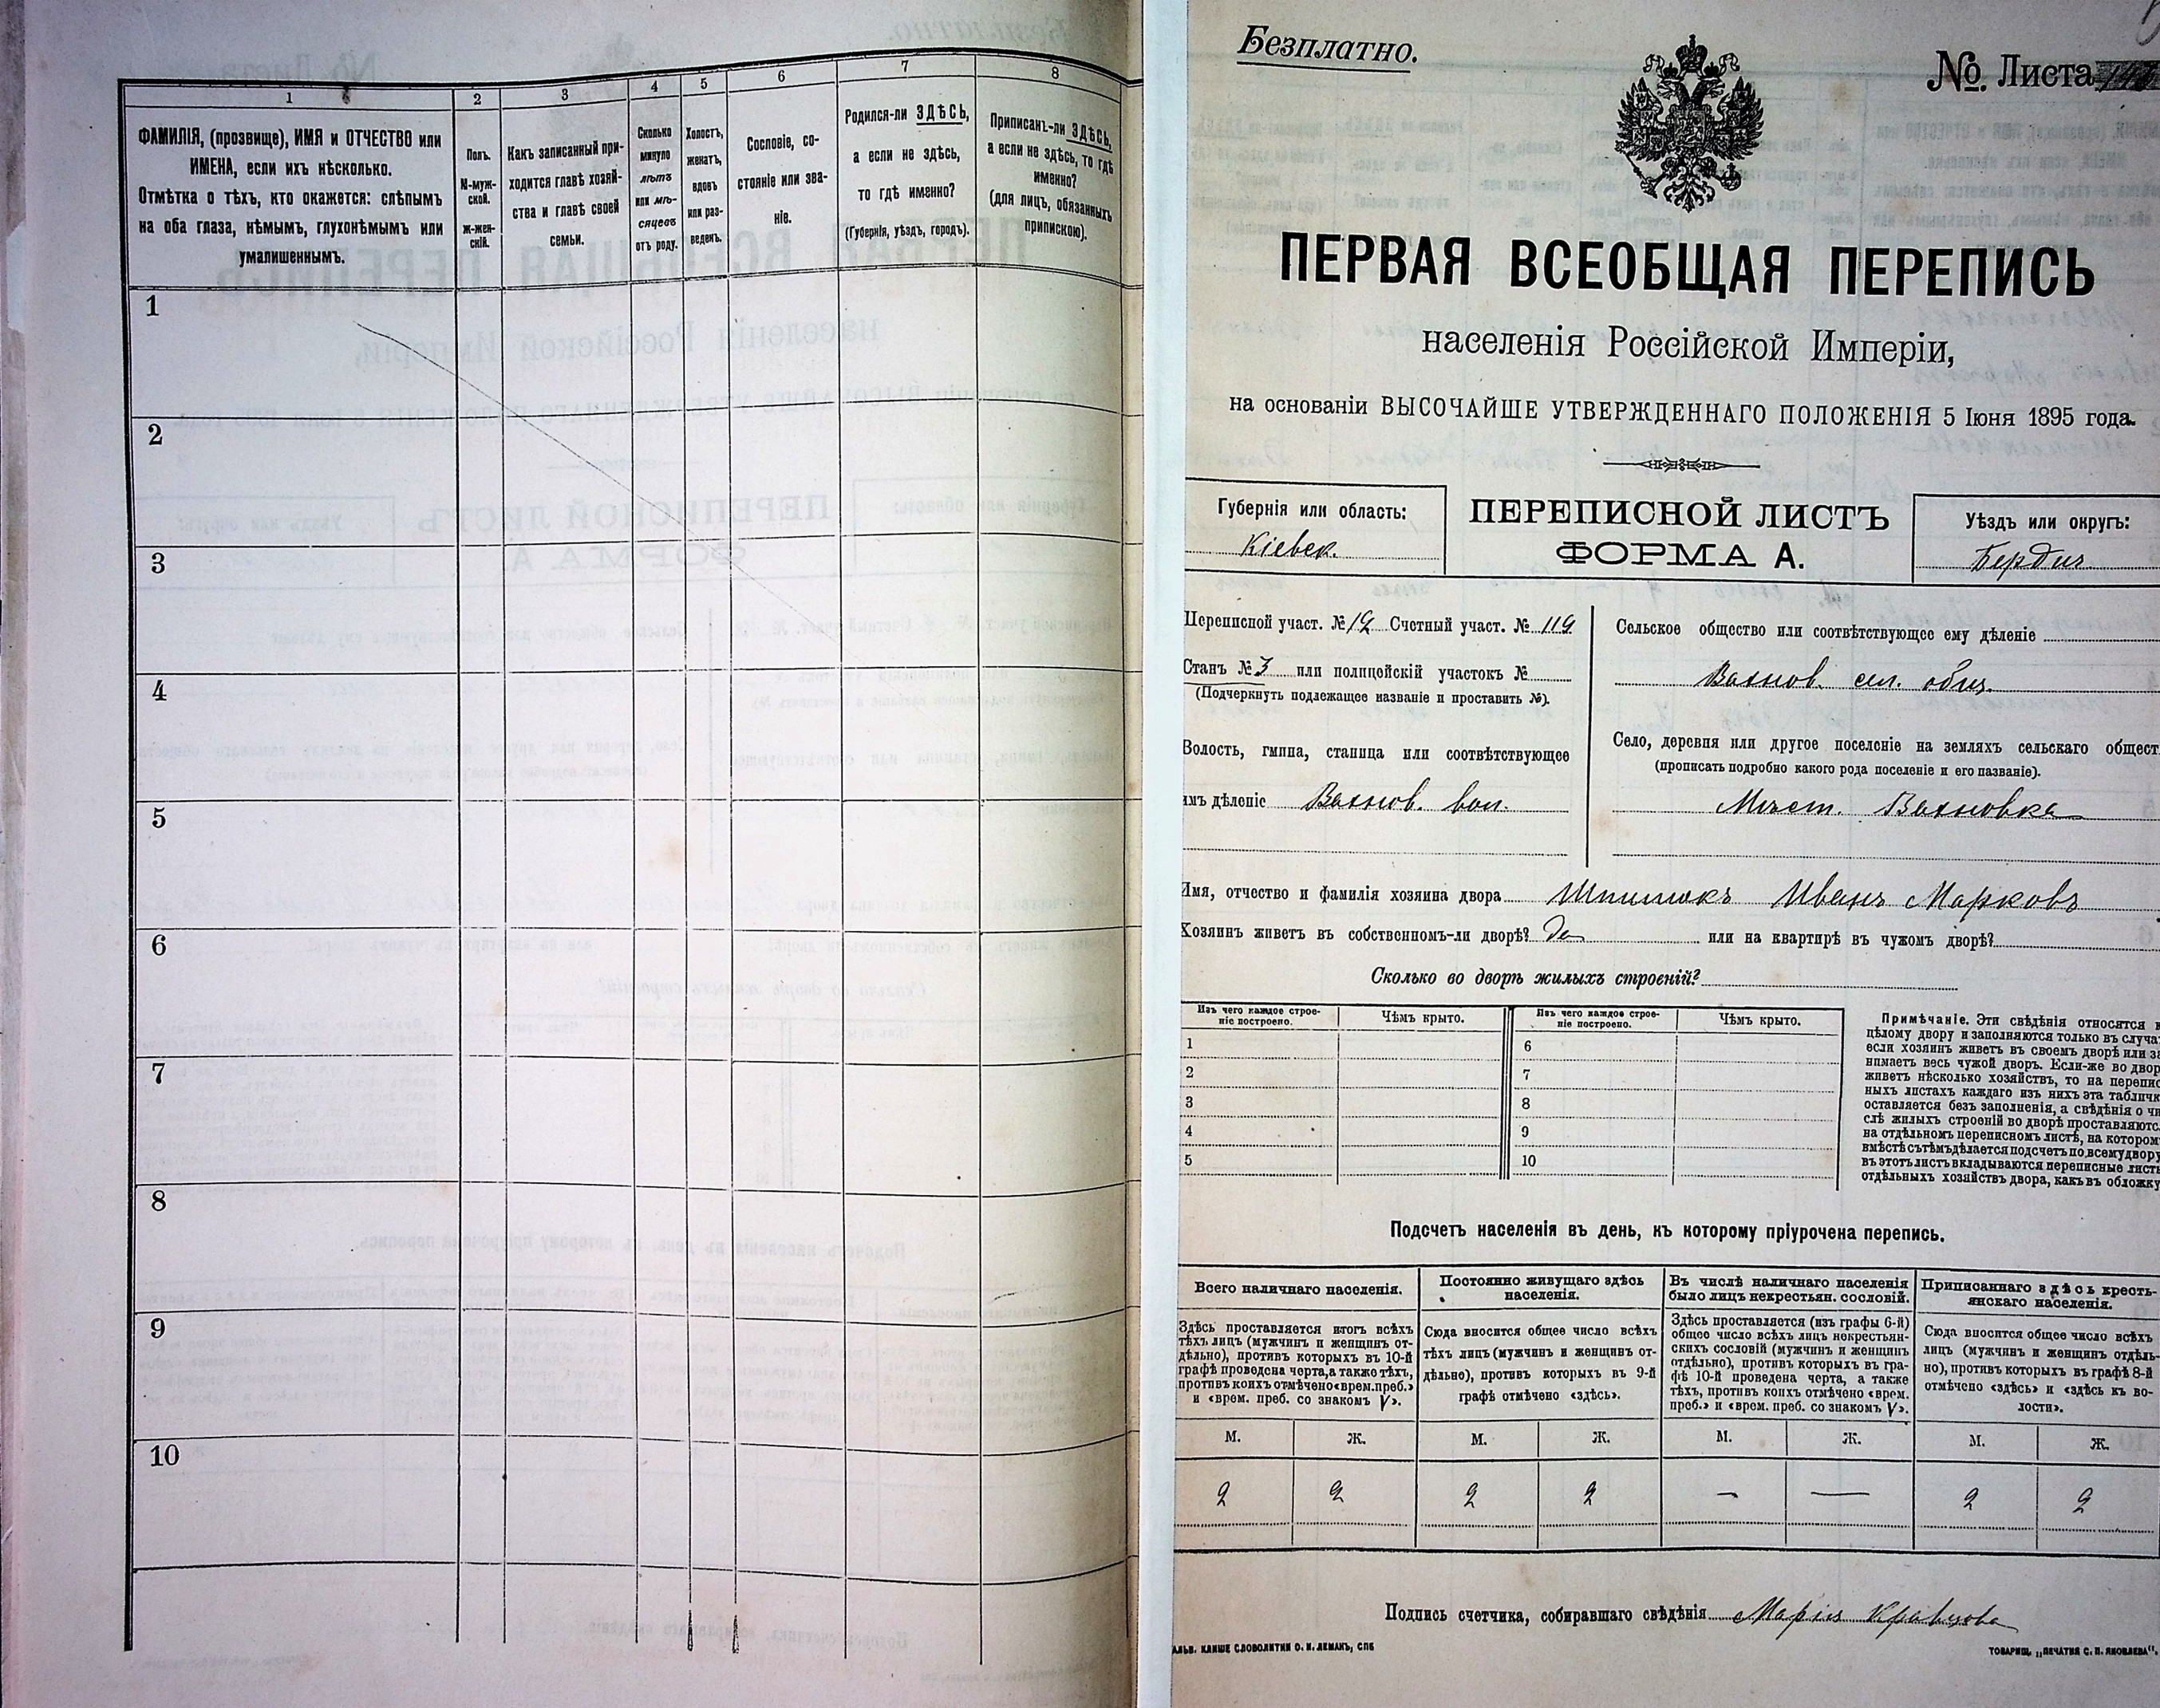 1
2
3
4
5
6
7
8
ФАМИЛІЯ, (прозвище), ИМЯ и ОТЧЕСТВО или
ИМЕНА, если ихъ нѣсколько.
Отмѣтка о тѣхъ, кто окажется: слѣпымъ
на оба глаза, нѣмымъ, глухонѣмымъ или
умалишеннымъ.
Полъ.
М-муж-
ской.
ж-жен-
скій.
Какъ записанный при-
ходится главѣ хозяй-
ства и главѣ своей
семьи.
Сколько
минуло
лѣтъ
или мѣ-
сяцевъ
отъ роду.
Холостъ,
женатъ,
вдовъ
или раз-
веденъ.
Сословіе, со-
стояніе или зва-
ніе.
Родился-ли ЗДѢСЬ,
а если не здѣсь,
то гдѣ именно?
(Губернія, уѣздъ, городъ).
Приписанъ-ли ЗДѢСЬ,
а если не здѣсь, то гдѣ
именно?
(для лицъ, обязанныхъ
припискою).
1
2
3
4
5
6
7
8
9
10
Безплатно.
№. Листа
ПЕРВАЯ ВСЕОБЩАЯ ПЕРЕПИСЬ
населенія Россійской Имперіи,
на основаніи ВЫСОЧАЙШЕ УТВЕРЖДЕННАГО ПОЛОЖЕНІЯ 5 Іюня 1895 года.
Губернія или область:
Кіевск.
ПЕРЕПИСНОЙ ЛИСТЪ
ФОРМА А.
Уѣздъ или округъ:
Бердич.
Переписной участ. № 12 Счетный участ. № 119
Станъ № 3 или полицейскій участокъ №
(Подчеркнуть подлежащее названіе и проставить №).
Волость, гмина, станица или соотвѣтствующее
имъ дѣленіе Вахнов. вол.
Сельское общество или соотвѣтствующее ему дѣленіе
Вахнов. сел. общ.
Село, деревня или другое поселеніе на земляхъ сельскаго общест
(прописать подробно какого рода поселеніе и его названіе).
Мѣст. Вахновка
Имя, отчество и фамилія хозяина двора Шпилюкъ Иванъ Марковъ
Хозяинъ живетъ въ собственномъ-ли дворѣ? Да или на квартирѣ въ чужомъ дворѣ?
Сколько во дворѣ жилыхъ строеній?
Изъ чего каждое строе-
ніе построено.
Чѣмъ крыто.
Изъ чего каждое строе-
ніе построено.
Чѣмъ крыто.
1
2
3
4
5
6
7
8
9
10
Примѣчаніе. Эти свѣдѣнія относятся к
цѣлому двору и заполняются только въ случа
если хозяинъ живетъ въ своемъ дворѣ или за
нимаетъ весь чужой дворъ. Если-же во двор
живетъ нѣсколько хозяйствъ, то на перепис
ныхъ листахъ каждаго изъ нихъ эта табличк
оставляется безъ заполненія, а свѣдѣнія о чи
слѣ жилыхъ строеній во дворѣ проставляютс
на отдѣльномъ переписномъ листѣ, на котором
вмѣстѣ съ тѣмъ дѣлается подсчетъ по всему двору
въ этотъ листъ вкладываются переписные лист
отдѣльныхъ хозяйствъ двора, какъ въ обложку
Подсчетъ населенія въ день, къ которому пріурочена перепись.
Всего наличнаго населенія.
Постоянно живущаго здѣсь
населенія.
Въ числѣ наличнаго населенія
было лицъ некрестьян. сословій.
Приписаннаго здѣсь кресть-
янскаго населенія.
Здѣсь проставляется итогъ всѣхъ
тѣхъ лицъ (мужчинъ и женщинъ от-
дѣльно), противъ которыхъ въ 10-й
графѣ проведена черта, а также тѣхъ,
противъ коихъ отмѣчено «врем. преб.»
и «врем. преб. со знакомъ V».
Сюда вносится общее число всѣхъ
тѣхъ лицъ (мужчинъ и женщинъ от-
дѣльно), противъ которыхъ въ 9-й
графѣ отмѣчено «здѣсь».
Здѣсь проставляется (изъ графы 6-й)
общее число всѣхъ лицъ некрестьян-
скихъ сословій (мужчинъ и женщинъ
отдѣльно), противъ которыхъ въ гра-
фѣ 10-й проведена черта, а также
тѣхъ, противъ коихъ отмѣчено «врем.
преб.» и «врем. преб. со знакомъ V».
Сюда вносится общее число всѣхъ
лицъ (мужчинъ и женщинъ отдѣль-
но), противъ которыхъ въ графѣ 8-й
отмѣчено «здѣсь» и «здѣсь къ во-
лости».
М. Ж. М. Ж. М. Ж. М. Ж.
2 2 2 2 — — 2 2
Подпись счетчика, собиравшаго свѣдѣнія Марія Кравцова
АЛЬВ. КЛИШЕ СЛОВОЛИТНИ О. И. ЛЕМАНЪ, СПБ
ТОВАРИЩ. „ПЕЧАТНЯ С. П. ЯКОВЛЕВА".